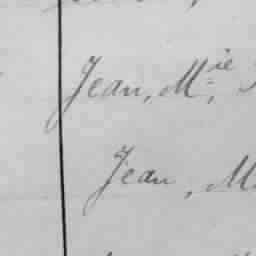 Jean, Mie,
Jean, M